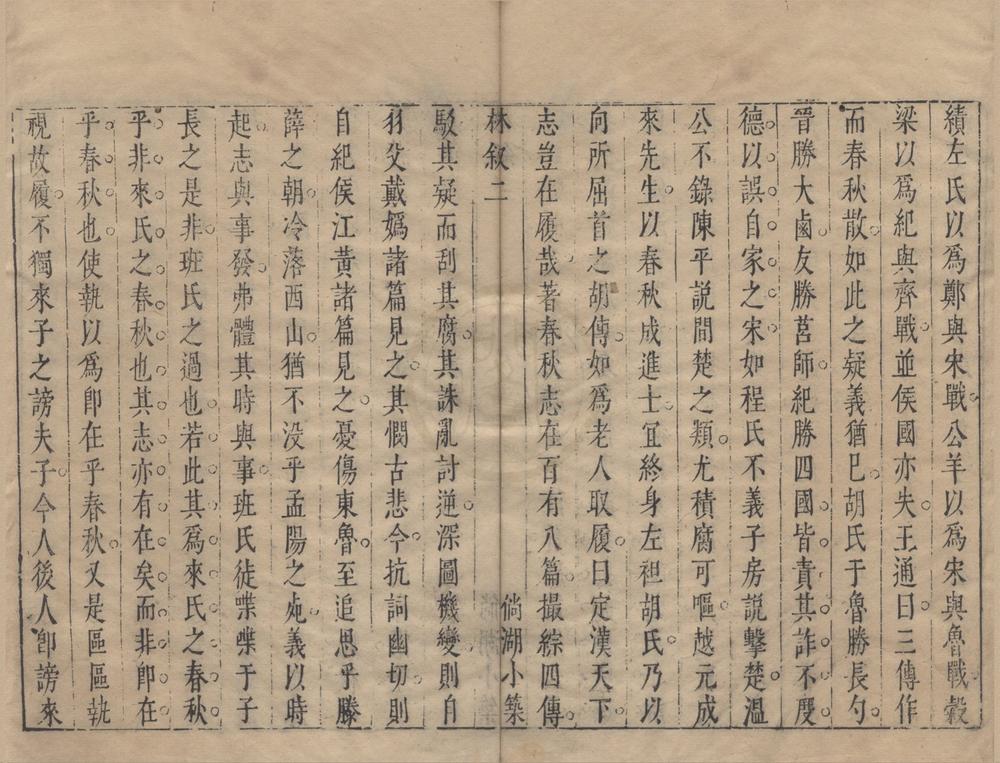 績左氏以爲鄭與宋戰公羊以爲宋與魯戰穀
梁以爲紀與齊戰並侯國亦失王通曰三傳作
而春秋散如此之疑義猶巳胡氏于魯勝長勺
晉勝大鹵友勝莒師紀勝四國皆責其詐不度
德以誤自家之宋如程氏不義子房說擊楚溫
公不錄陳平說間楚之類尤積腐可嘔越元成
來先生以春秋成進士宜終身左袒胡氏乃以
向所屈首之胡傳如爲老人取履曰定漢天下
志豈在履哉著春秋志在百有八篇撮綜四傳
林叙二
倘湖小築
駁其疑而刮其腐其誅亂討逆深圖機變則自
羽父戴嬀諸篇見之其憫古悲今抗詞幽切則
自紀侯江黃諸篇見之憂傷東魯至追思乎滕
薛之朝冷落西山猶不没乎孟陽之處義以時
起志與事發弗體其時與事班氏徒喋喋于子
長之是非班氏之過也若此其爲來氏之春秋
乎非來氏之春秋也其志亦有在矣而非卽在
乎春秋也使執以爲卽在乎春秋又是區區執
視故履不獨來子之謗夫子今人後人卽謗來